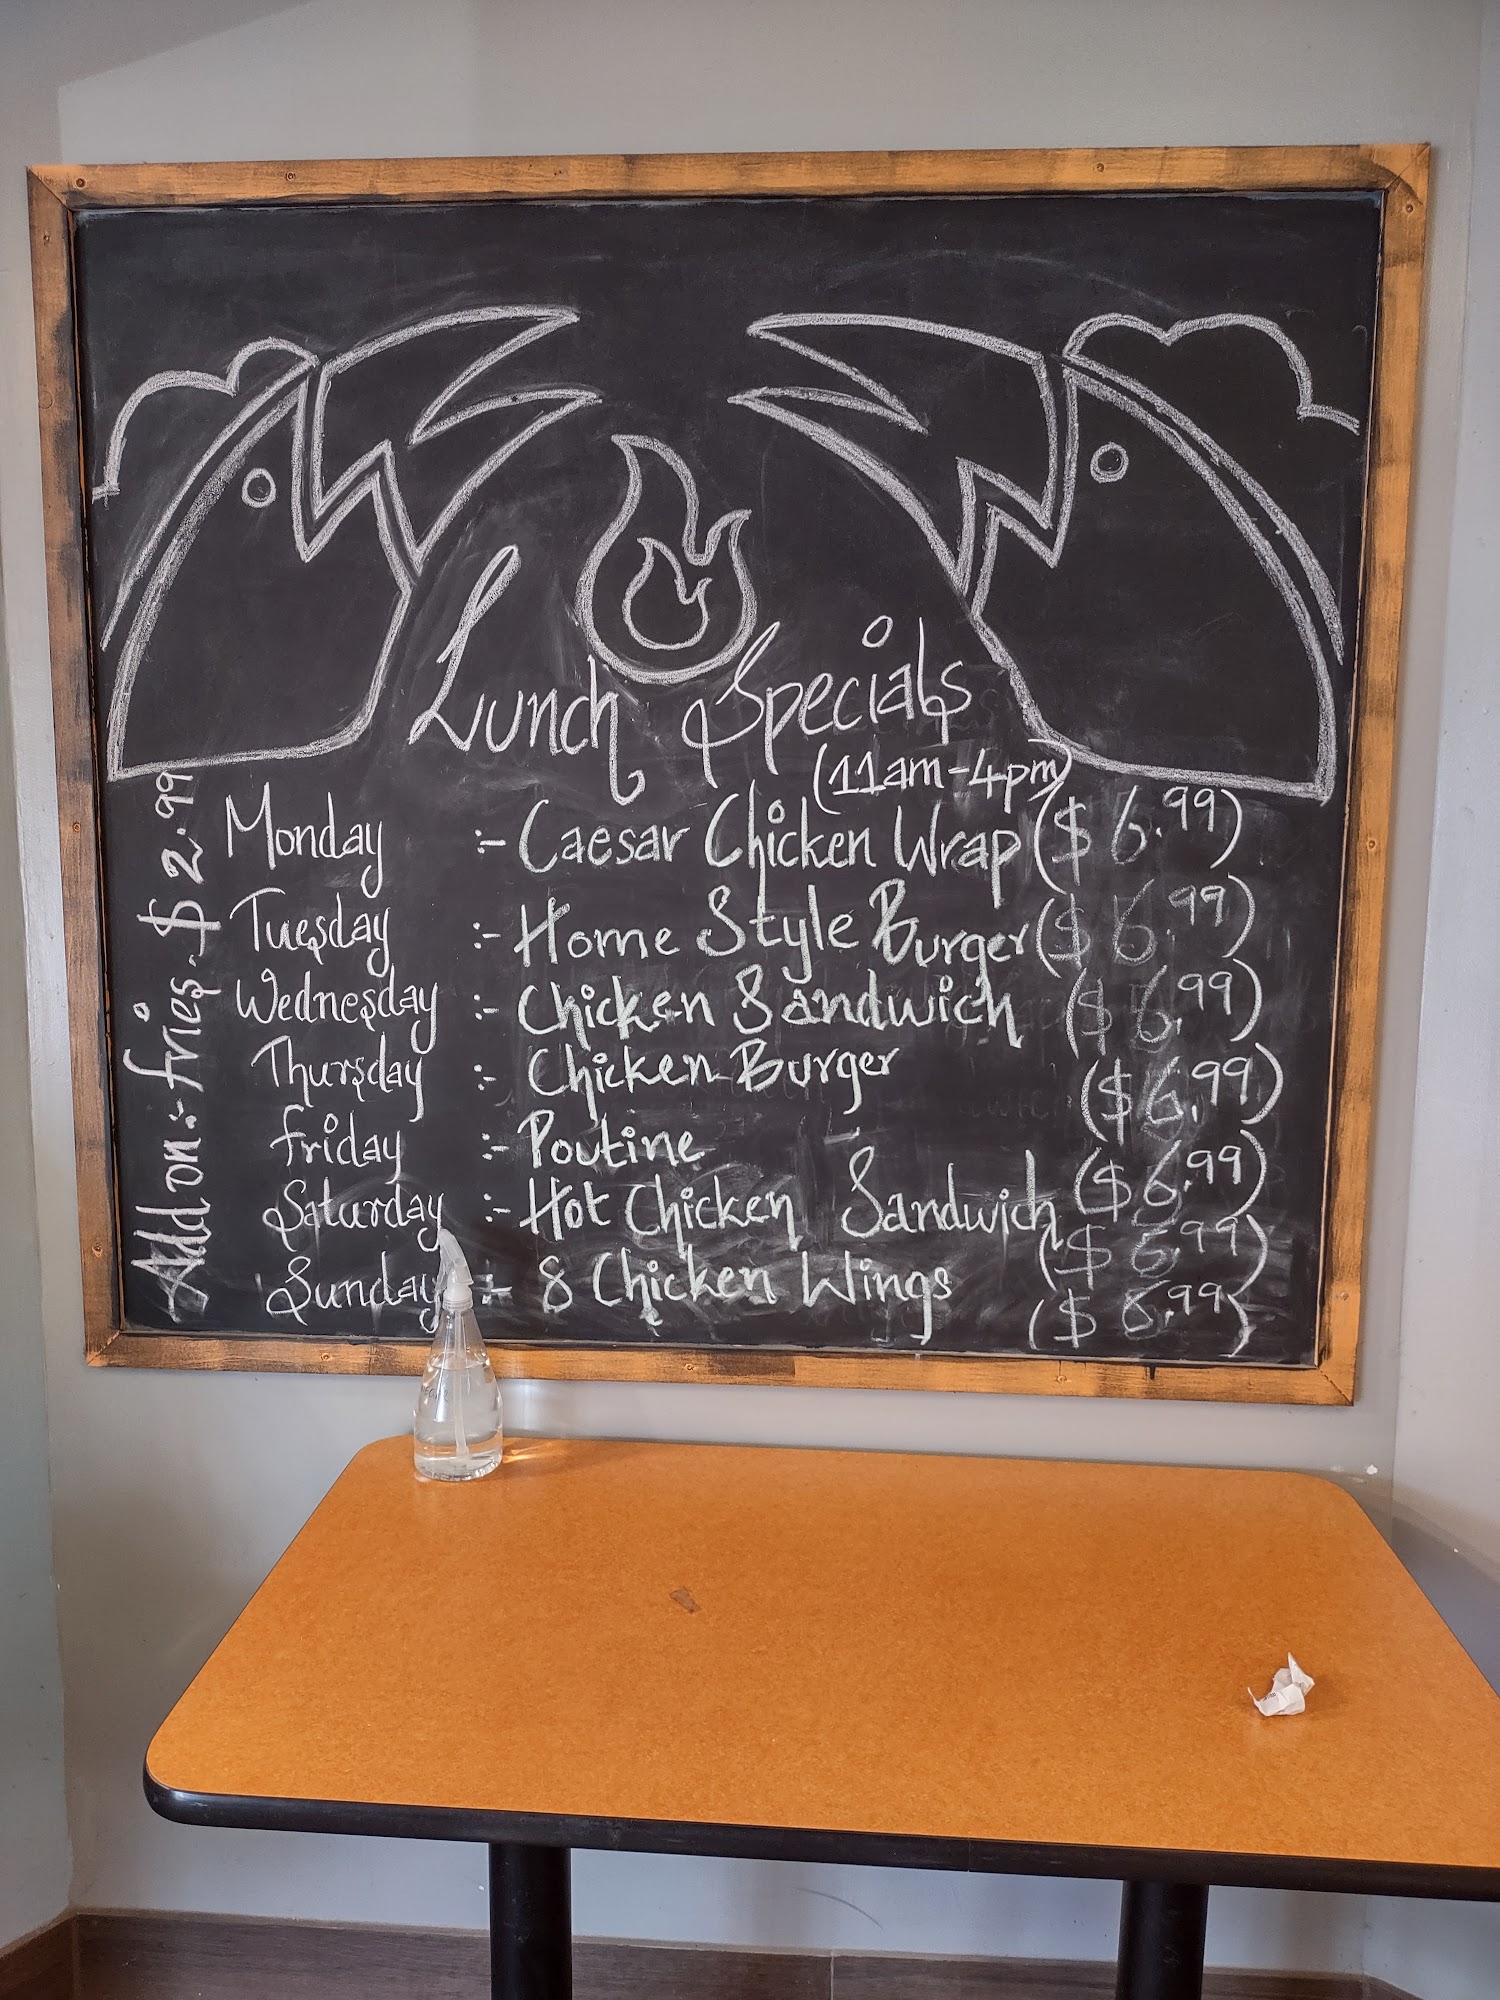 Lunch Specials
(11am-4pm)
Monday :- Caesar Chicken Wrap ($ 6.99)
Tuesday :- Home Style Burger ($ 6.99)
Wednesday :- Chicken Sandwich ($ 6.99)
Thursday :- Chicken Burger ($ 6.99)
friday :- Poutine ($ 6.99)
Saturday :- Hot Chicken Sandwich ($ 6.99)
Sunday :- 8 Chicken Wings ($ 6.99)
Add on:- fries - $ 2.99